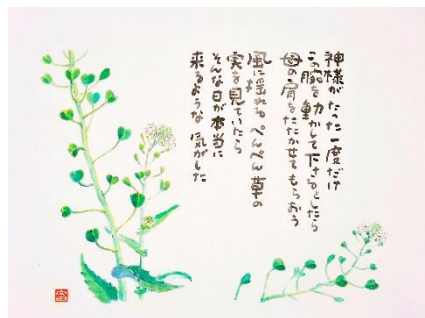 神様がたった一度だけ
この腕を動かして下さるとしたら
母の肩をたたかせてもらおう
風に揺れるぺんぺん草の
実を見ていたら
そんな日が本当に
来るような気がした
富